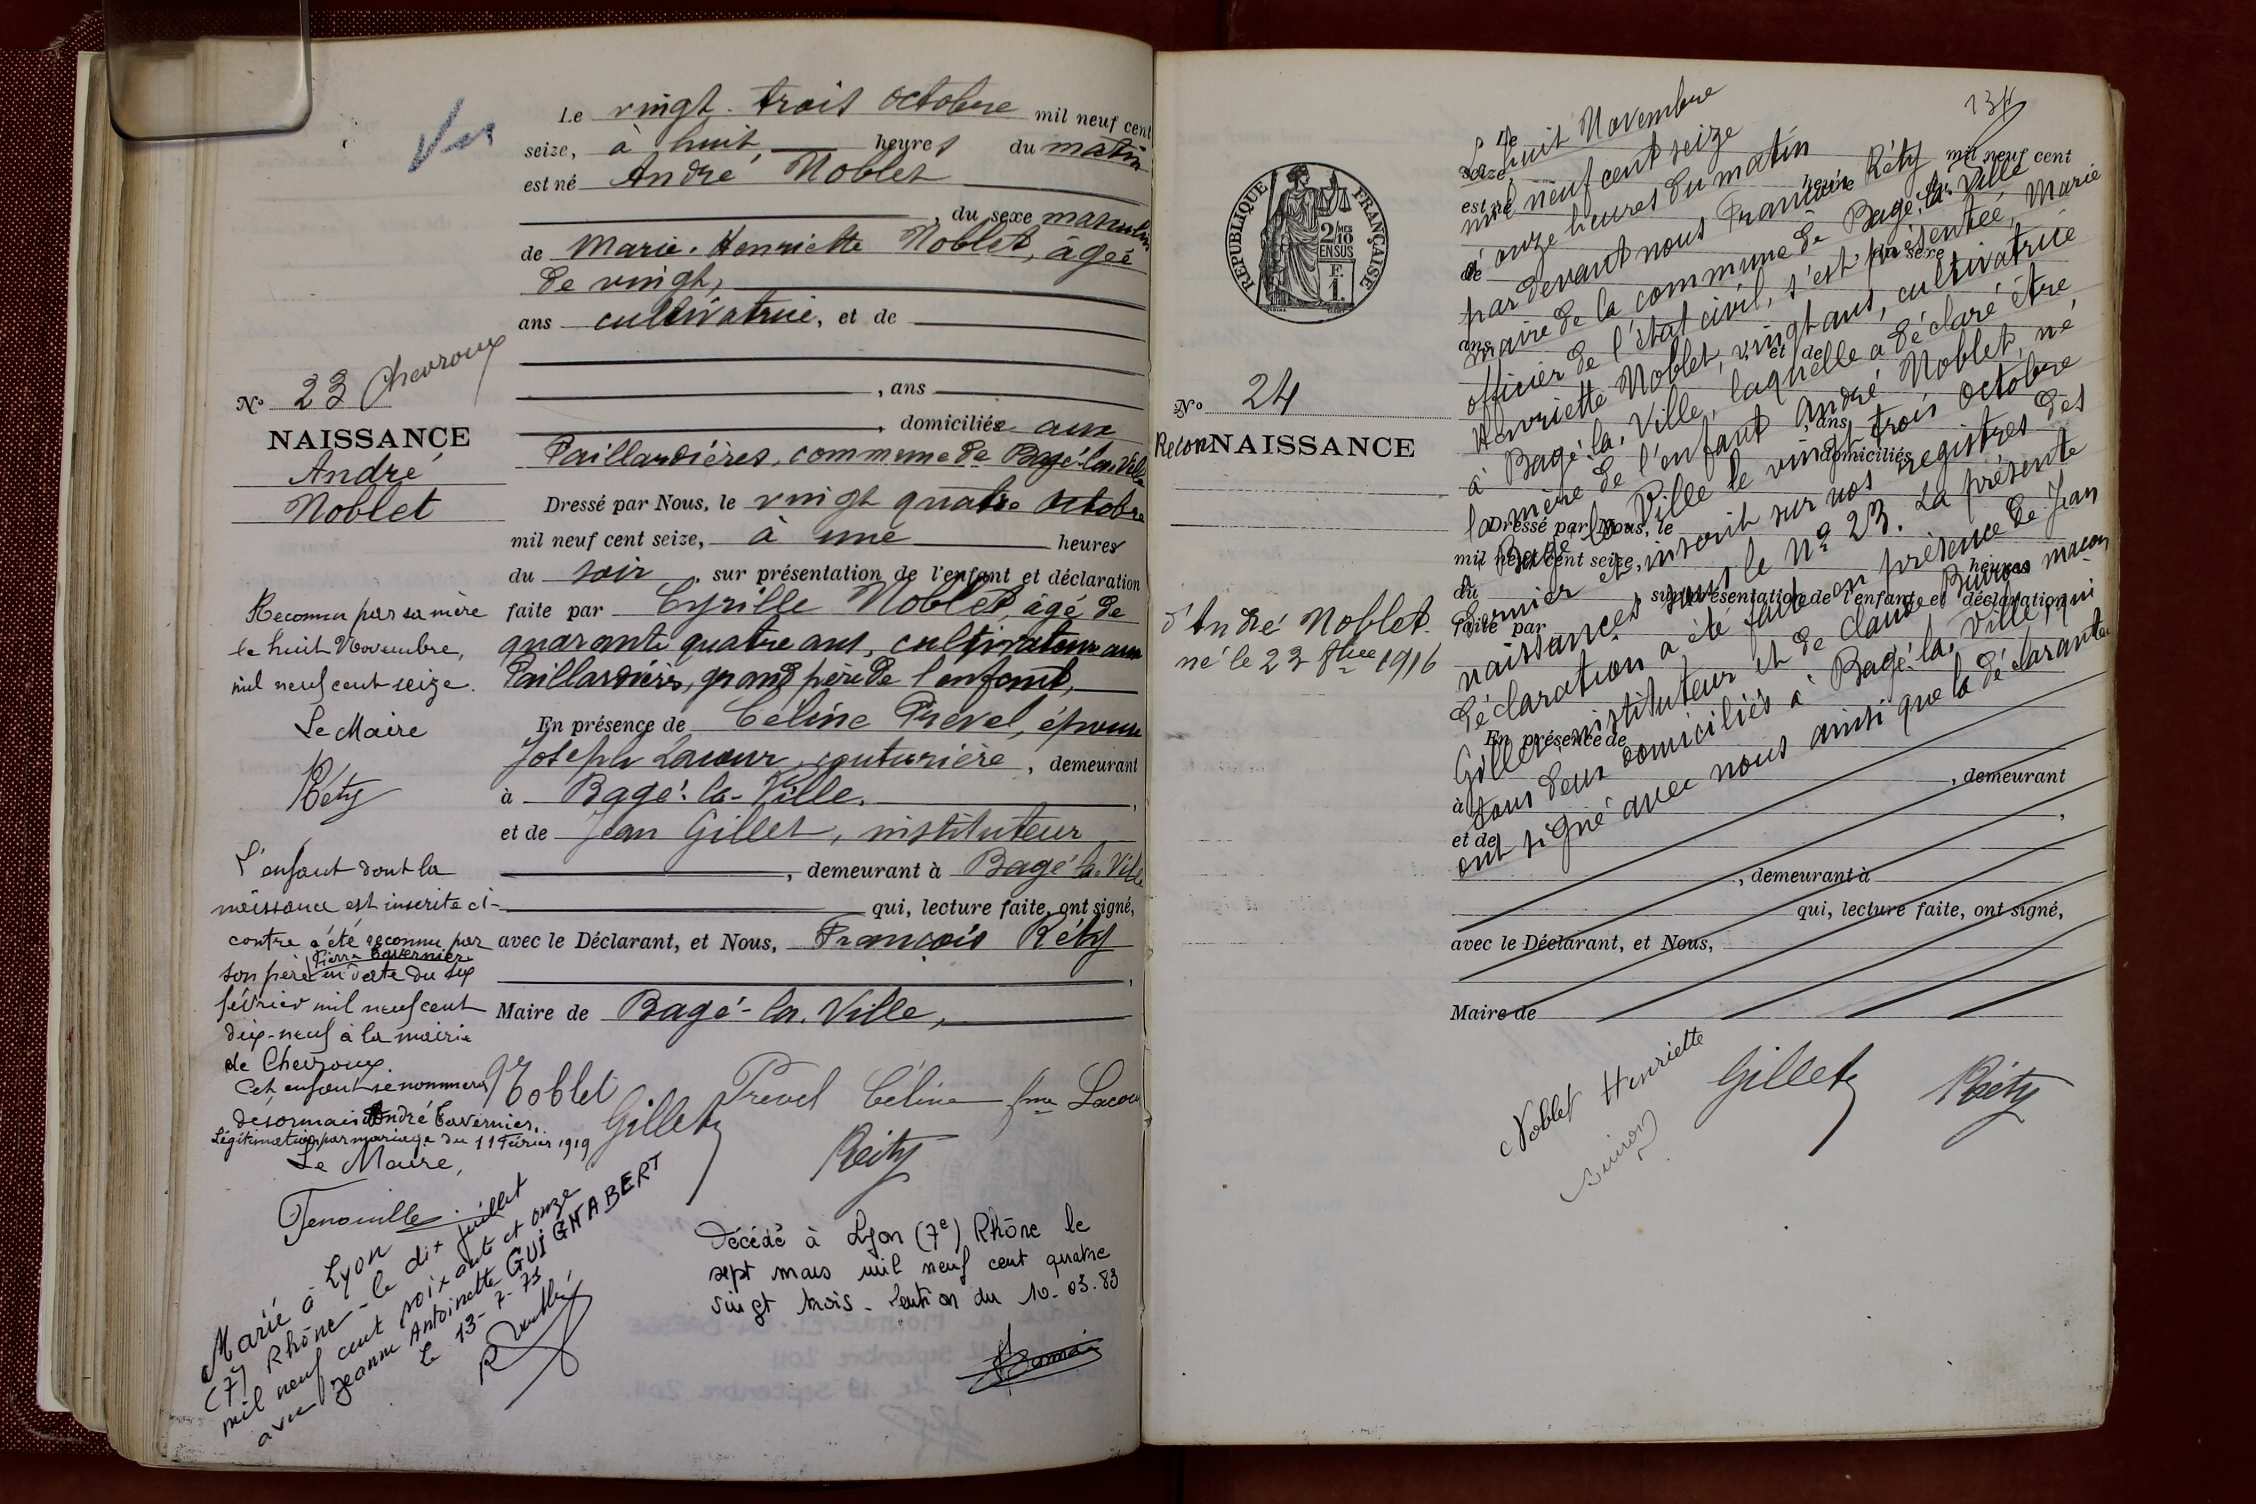 Vu
Le vingt-trois octobre mil neuf cent
seize, à huit heures du matin
est né André Noblet
, du sexe masculin
de Marie-Henriette Noblet, âgée
de vingt,
ans cultivatrice, et de
, ans
, domiciliée aux
Paillardières, commune de Bagé-la-Ville
Dressé par Nous, le vingt quatre octobre
mil neuf cent seize, à une heures
du soir, sur présentation de l'enfant et déclaration
faite par Cyrille Noblet, âgé de
quarante quatre ans, cultivateur aux
Paillardières, grand père de l'enfant,
En présence de Céline Prevel, épouse
Joseph Lacour, couturière, demeurant
à Bagé-la-Ville.
et de Jean Gillet, instituteur
, demeurant à Bagé-la-Ville
qui, lecture faite, ont signé,
avec le Déclarant, et Nous, François Réty
Maire de Bagé-la-Ville,
Noblet Prevel Céline fme Lacour
Gillet
Réty
No 23 Chevroux
NAISSANCE
André
Noblet
Reconnu par sa mère
le huit Novembre,
mil neuf cent seize.
Le Maire
Réty
L'enfant dont la
naissance est inscrite ci-
contre a été reconnu par
son père Pierre Tavernier en date du six
février mil neuf cent
dix-neuf à la mairie
de Chevroux.
Cet enfant se nommera
désormais André Tavernier.
Légitimation par mariage du 11 février 1919
Le Maire,
Marié à Lyon
(7) Rhône - le dix juillet
mil neuf cent soixante et onze
avec Jeanne Antoinette GUIGNABERT
Le 13-7-71
Décédé à Lyon (7e) Rhône le
sept mars mil neuf cent quatre
vingt trois - Mention du 10-03-83
134
RÉPUBLIQUE FRANÇAISE
2/10 EN SUS
F.
1.
No 24
ReconNAISSANCE
d'André Noblet.
né le 23 8bre 1916
Le mil neuf cent
seize,
est né
heure du
du sexe
de
ans
et de
, ans
domiciliés
Dressé par Nous, le
mil neuf cent seize,
heures
du
sur présentation de l'enfant et déclaration
faite par
En présence de
, demeurant
à
et de
, demeurant à
qui, lecture faite, ont signé,
avec le Déclarant, et Nous,
Maire de
Le huit Novembre
mil neuf cent seize
à onze heures du matin
par devant nous François Réty
maire de la commune de Bagé-la-Ville
officier de l'état civil, s'est présentée, Marie
Henriette Noblet, vingt ans, cultivatrice
à Bagé-la-Ville, laquelle a déclaré être
la mère de l'enfant André Noblet, né
à Bagé-la-Ville le vingt trois octobre
dernier et inscrit sur nos registres des
naissances sous le No 23. La présente
déclaration a été faite en présence de Jean
Gillet, instituteur et de Claude Buiron maçon
tous deux domiciliés à Bagé-la-Ville, qui
ont signé avec nous ainsi que la déclarante
Noblet Henriette
Buiron
Gillet
Réty